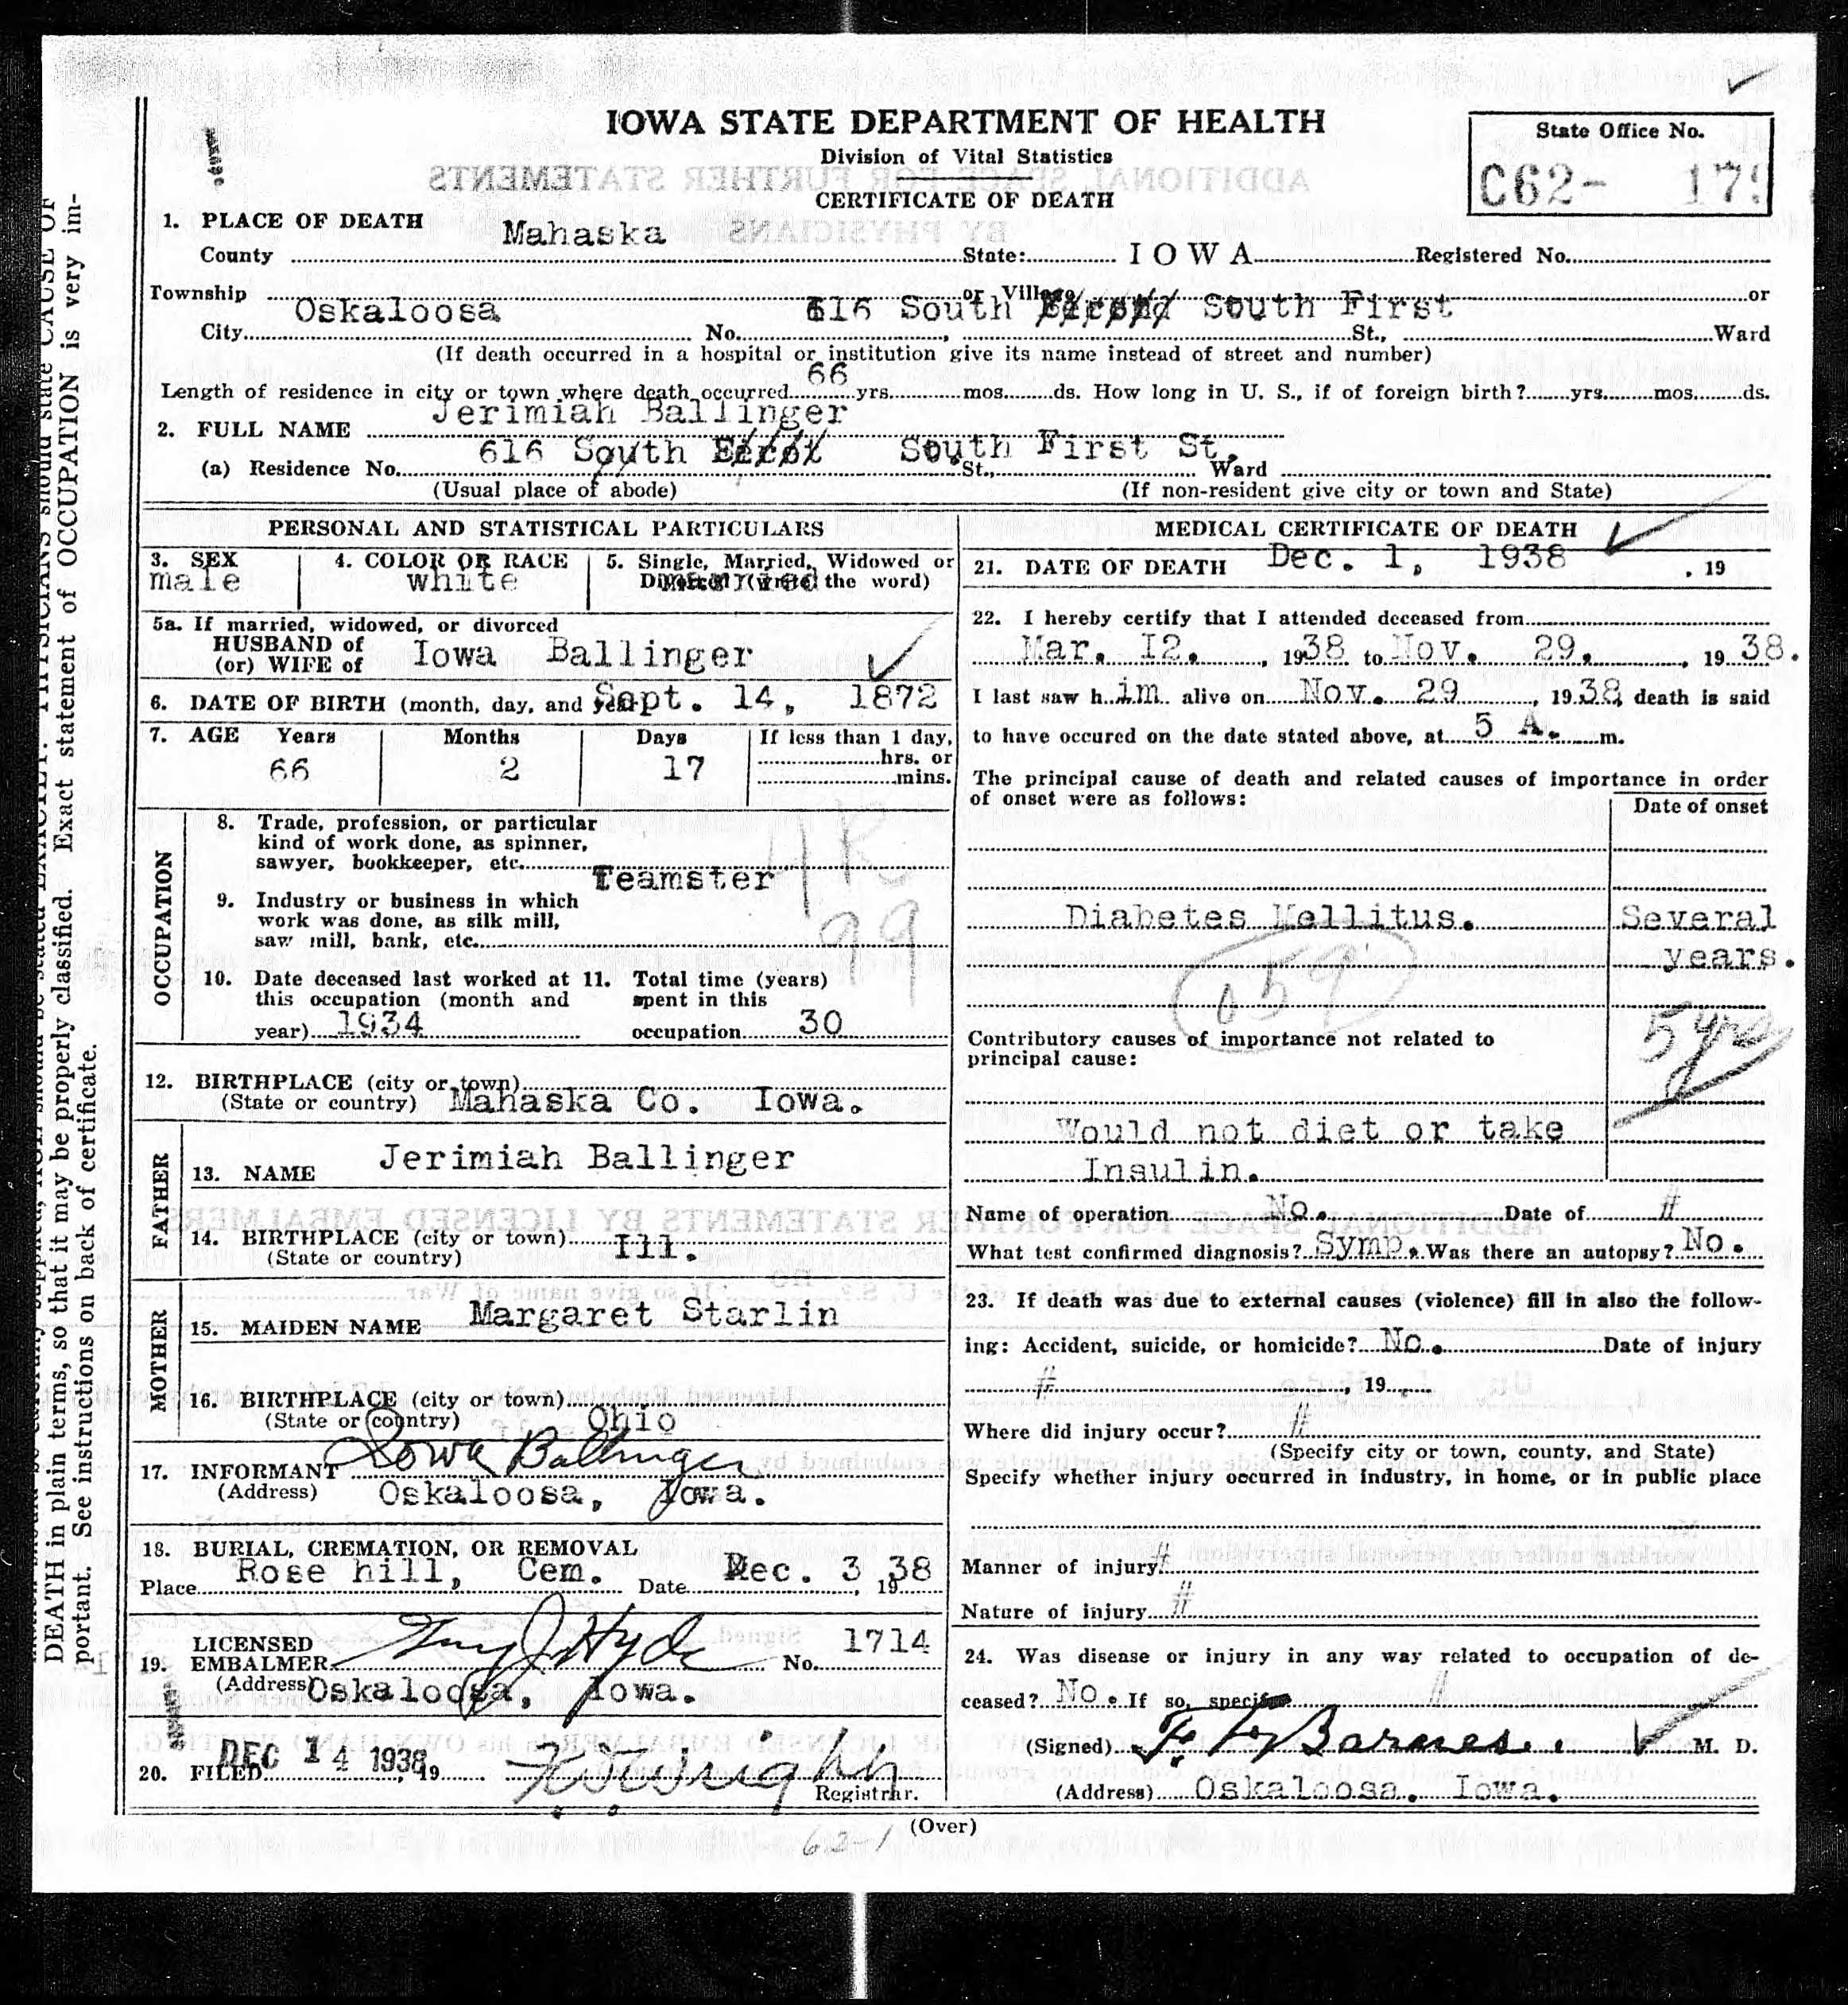 IOWA STATE DEPARTMENT OF HEALTH
Division of Vital Statistics
CERTIFICATE OF DEATH
State Office No.
C62- 179
ADDITIONAL SPACE FOR FURTHER STATEMENTS
BY PHYSICIANS
1. PLACE OF DEATH
County Mahaska State: IOWA Registered No.
Township or Village or
City Oskaloosa No. 616 South South First St., Ward
(If death occurred in a hospital or institution give its name instead of street and number)
Length of residence in city or town where death occurred 66 yrs. mos. ds. How long in U. S., if of foreign birth? yrs. mos. ds.
2. FULL NAME Jerimiah Ballinger
(a) Residence No. 616 South South First St. St., Ward
(Usual place of abode) (If non-resident give city or town and State)
PERSONAL AND STATISTICAL PARTICULARS
3. SEX male
4. COLOR OR RACE white
5. Single, Married, Widowed or
Divorced (write the word) married
5a. If married, widowed, or divorced
HUSBAND of
(or) WIFE of Iowa Ballinger
6. DATE OF BIRTH (month, day, and year) Sept. 14, 1872
7. AGE Years Months Days If less than 1 day,
66 2 17 hrs. or
mins.
OCCUPATION
8. Trade, profession, or particular
kind of work done, as spinner,
sawyer, bookkeeper, etc. Teamster
9. Industry or business in which
work was done, as silk mill,
saw mill, bank, etc.
99
10. Date deceased last worked at
this occupation (month and
year) 1934
11. Total time (years)
spent in this
occupation 30
12. BIRTHPLACE (city or town)
(State or country) Mahaska Co. Iowa.
FATHER
13. NAME Jerimiah Ballinger
14. BIRTHPLACE (city or town) Ill.
(State or country)
MOTHER
15. MAIDEN NAME Margaret Starlin
16. BIRTHPLACE (city or town)
(State or country) Ohio
17. INFORMANT Iowa Ballinger
(Address) Oskaloosa, Iowa.
18. BURIAL, CREMATION, OR REMOVAL
Place Rose hill, Cem. Date Dec. 3, 19 38
19. LICENSED
EMBALMER Hyde No. 1714
(Address) Oskaloosa, Iowa.
20. FILED DEC 14 1938, 19 Wright
Registrar.
MEDICAL CERTIFICATE OF DEATH
21. DATE OF DEATH Dec. 1, 1938, 19
22. I hereby certify that I attended deceased from
Mar. I2., 1938 to Nov. 29., 19 38.
I last saw him alive on Nov. 29, 19 38, death is said
to have occured on the date stated above, at 5 A. m.
The principal cause of death and related causes of importance in order
of onset were as follows:
Date of onset
Diabetes Mellitus. Several
years.
059
5 yrs
Contributory causes of importance not related to
principal cause:
Would not diet or take
Insulin.
Name of operation No. Date of #
What test confirmed diagnosis? Symp. Was there an autopsy? No.
23. If death was due to external causes (violence) fill in also the follow-
ing: Accident, suicide, or homicide? No. Date of injury
#, 19
Where did injury occur? #
(Specify city or town, county, and State)
Specify whether injury occurred in industry, in home, or in public place
Manner of injury #
Nature of injury #
24. Was disease or injury in any way related to occupation of de-
ceased? No. If so, specify #
(Signed) F. Barnes. M. D.
(Address) Oskaloosa. Iowa.
(Over)
62-1
DEATH in plain terms, so that it may be properly classified. Exact statement of OCCUPATION is very im-
portant. See instructions on back of certificate.